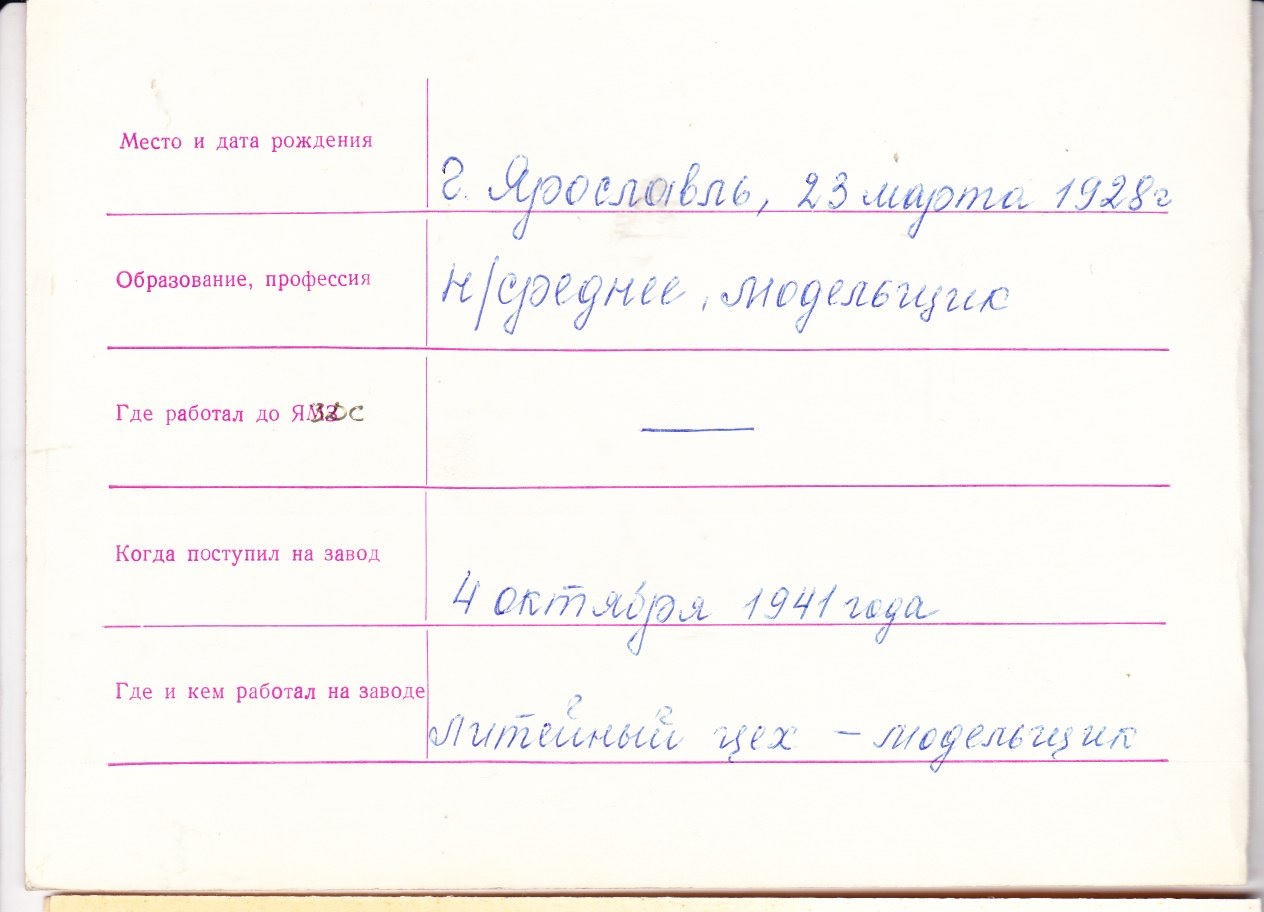 Место и дата рождения
г. Ярославль, 23 марта 1928г
Образование, профессия
н/среднее, модельщик
Где работал до
Когда поступил на завод
4 октября 1941 года
Где и кем работал на заводе
Литейный цех – модельщик